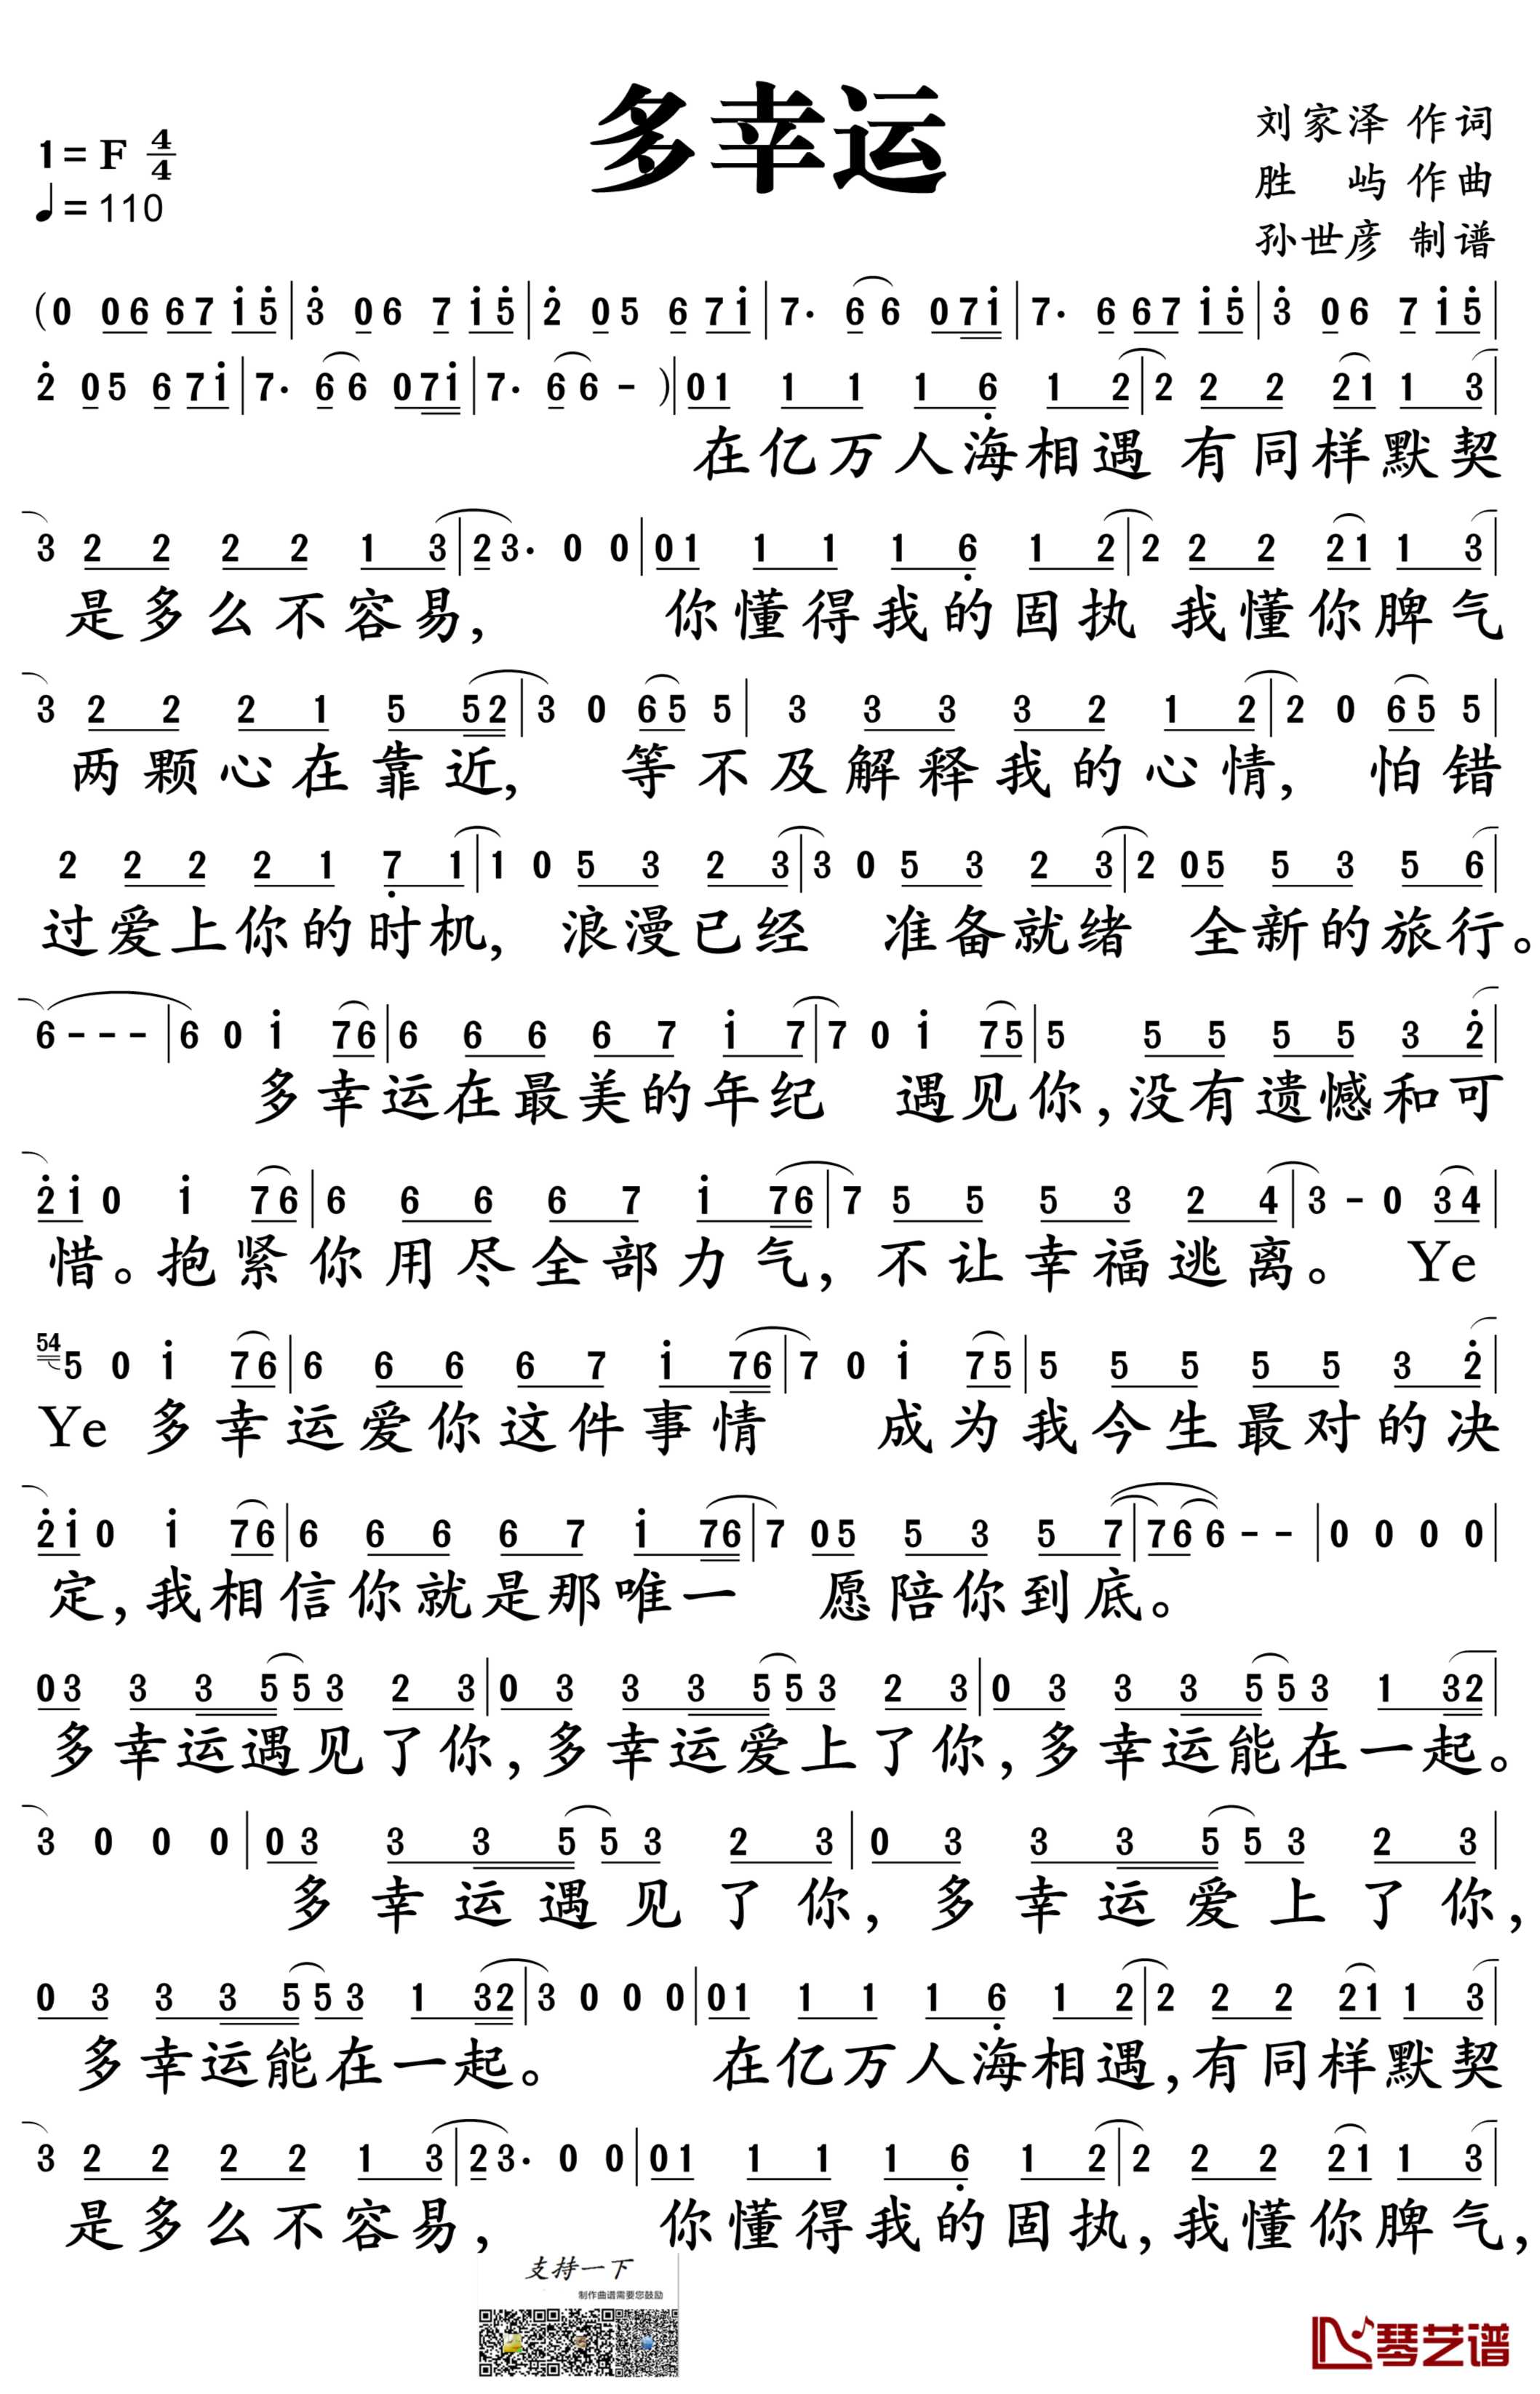 多幸运
1=F 4/4
♩=110
刘家泽 作词
胜 屿 作曲
孙世彦 制谱
(0 06 67 i5̇ | 3̇ 06 7 i5̇ | 2̇ 05 6 7i | 7· 6 6 07i | 7· 6 67 i5̇ | 3̇ 06 7 i5̇ |
2̇ 05 6 7i | 7· 6 6 07i | 7· 6 6 - ) | 01 1 1 1 6̣ 1 2 | 2 2 2 21 1 3 |
在亿万人海相遇 有同样默契
3 2 2 2 2 1 3 | 2 3· 0 0 | 01 1 1 1 6̣ 1 2 | 2 2 2 21 1 3 |
是多么不容易, 你懂得我的固执 我懂你脾气
3 2 2 2 1 5 52 | 3 0 65 5 | 3 3 3 3 2 1 2 | 2 0 65 5 |
两颗心在靠近, 等不及解释我的心情, 怕错
2 2 2 2 1 7̣ 1 | 1 0 5 3 2 3 | 3 0 5 3 2 3 | 2 05 5 3 5 6 |
过爱上你的时机, 浪漫已经 准备就绪 全新的旅行。
6 - - - | 6 0 i 76 | 6 6 6 6 7 i 7 | 7 0 i 75 | 5 5 5 5 5 3 2̇ |
多幸运在最美的年纪 遇见你,没有遗憾和可
2̇i 0 i 76 | 6 6 6 6 7 i 76 | 7 5 5 5 3 2 4 | 3 - 0 34 |
惜。抱紧你用尽全部力气, 不让幸福逃离。 Ye
54 5 0 i 76 | 6 6 6 6 7 i 76 | 7 0 i 75 | 5 5 5 5 5 3 2̇ |
Ye 多幸运爱你这件事情 成为我今生最对的决
2̇i 0 i 76 | 6 6 6 6 7 i 76 | 7 05 5 3 5 7 | 76 6 - - | 0 0 0 0 |
定,我相信你就是那唯一 愿陪你到底。
03 3 3 5 53 2 3 | 0 3 3 3 5 53 2 3 | 0 3 3 3 5 53 1 32 |
多幸运遇见了你,多幸运爱上了你,多幸运能在一起。
3 0 0 0 | 03 3 3 5 53 2 3 | 0 3 3 3 5 53 2 3 |
多幸运遇见了你, 多幸运爱上了你,
0 3 3 3 5 53 1 32 | 3 0 0 0 | 01 1 1 1 6̣ 1 2 | 2 2 2 21 1 3 |
多幸运能在一起。 在亿万人海相遇,有同样默契
3 2 2 2 2 1 3 | 2 3· 0 0 | 01 1 1 1 6̣ 1 2 | 2 2 2 21 1 3 |
是多么不容易, 你懂得我的固执,我懂你脾气,
支持一下
制作曲谱需要您鼓励
琴艺谱